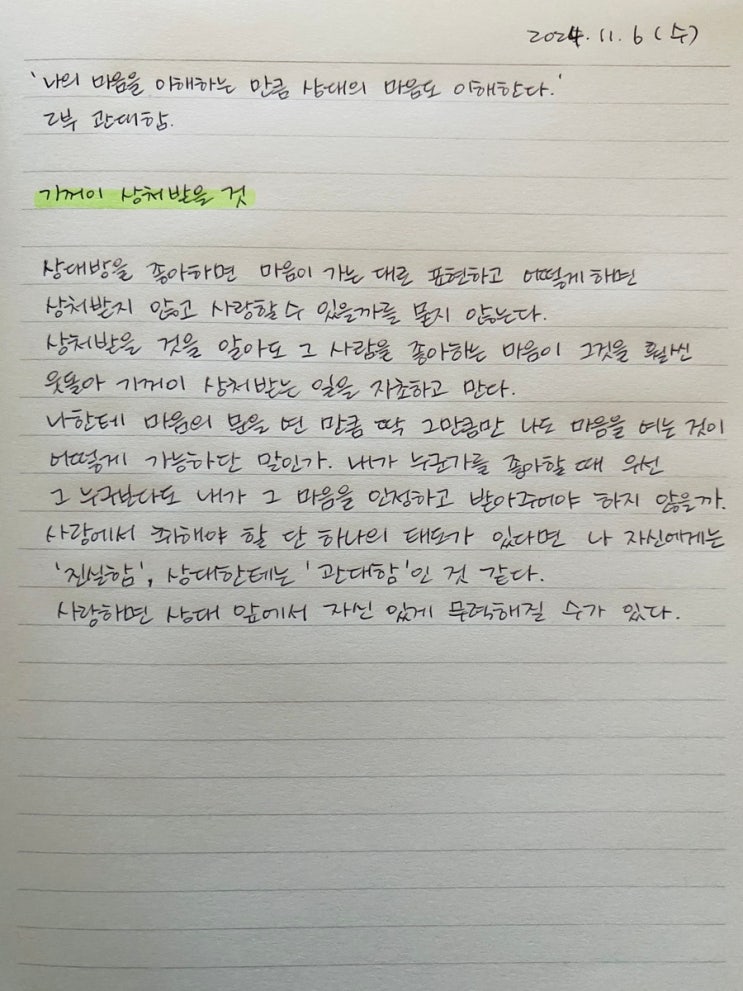 2024.11.6 (수)
'나의 마음을 이해하는 만큼 상대의 마음도 이해한다.'
2부 관대함.
기꺼이 상처받을 것
상대방을 좋아하면 마음이 가는 대로 표현하고 어떻게 하면
상처받지 않고 사랑할 수 있을까를 묻지 않는다.
상처받을 것을 알아도 그 사람을 좋아하는 마음이 그것을 훨씬
웃돌아 기꺼이 상처받는 일을 자초하고 만다.
나한테 마음의 문을 연 만큼 딱 그만큼만 나도 마음을 여는 것이
어떻게 가능하단 말인가. 내가 누군가를 좋아할 때 우선
그 누구보다도 내가 그 마음을 인정하고 받아주어야 하지 않을까.
사랑에서 취해야 할 단 하나의 태도가 있다면 나 자신에게는
'진실함', 상대한테는 '관대함'인 것 같다.
사랑하면 상대 앞에서 자신 있게 무력해질 수가 있다.